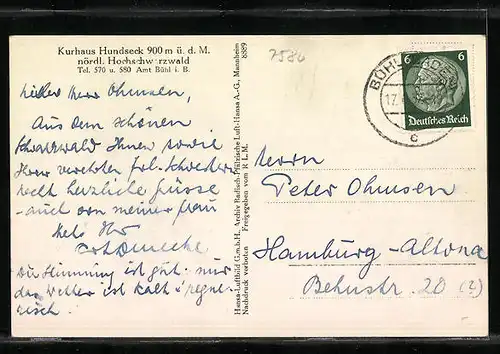 Kurhaus Hundseck 900 m ü. d. M.
nördl. Hochschwarzwald
Tel. 570 u. 580 Amt Bühl i. B.
Herr Ohmsen,
Aus dem schönen
Schwarzwald Ihnen sowie
Ihrer verehrten Frl. Schwester
recht herzliche Grüsse
- auch von meiner Frau
stets Ihr
Die Stimmung ist gut - nur
das Wetter ist kalt u. regne-
risch.
Hansa-Luftbild G.m.b.H, Archiv Badisch-Pfälzische Luft-Hansa A.-G., Mannheim 8889
Nachdruck verboten Freigegeben vom R L M.
BÜHL
17.
c
6 6
Deutsches Reich
Herrn
Peter Ohmsen
Hamburg-Altona
Behnstr. 20